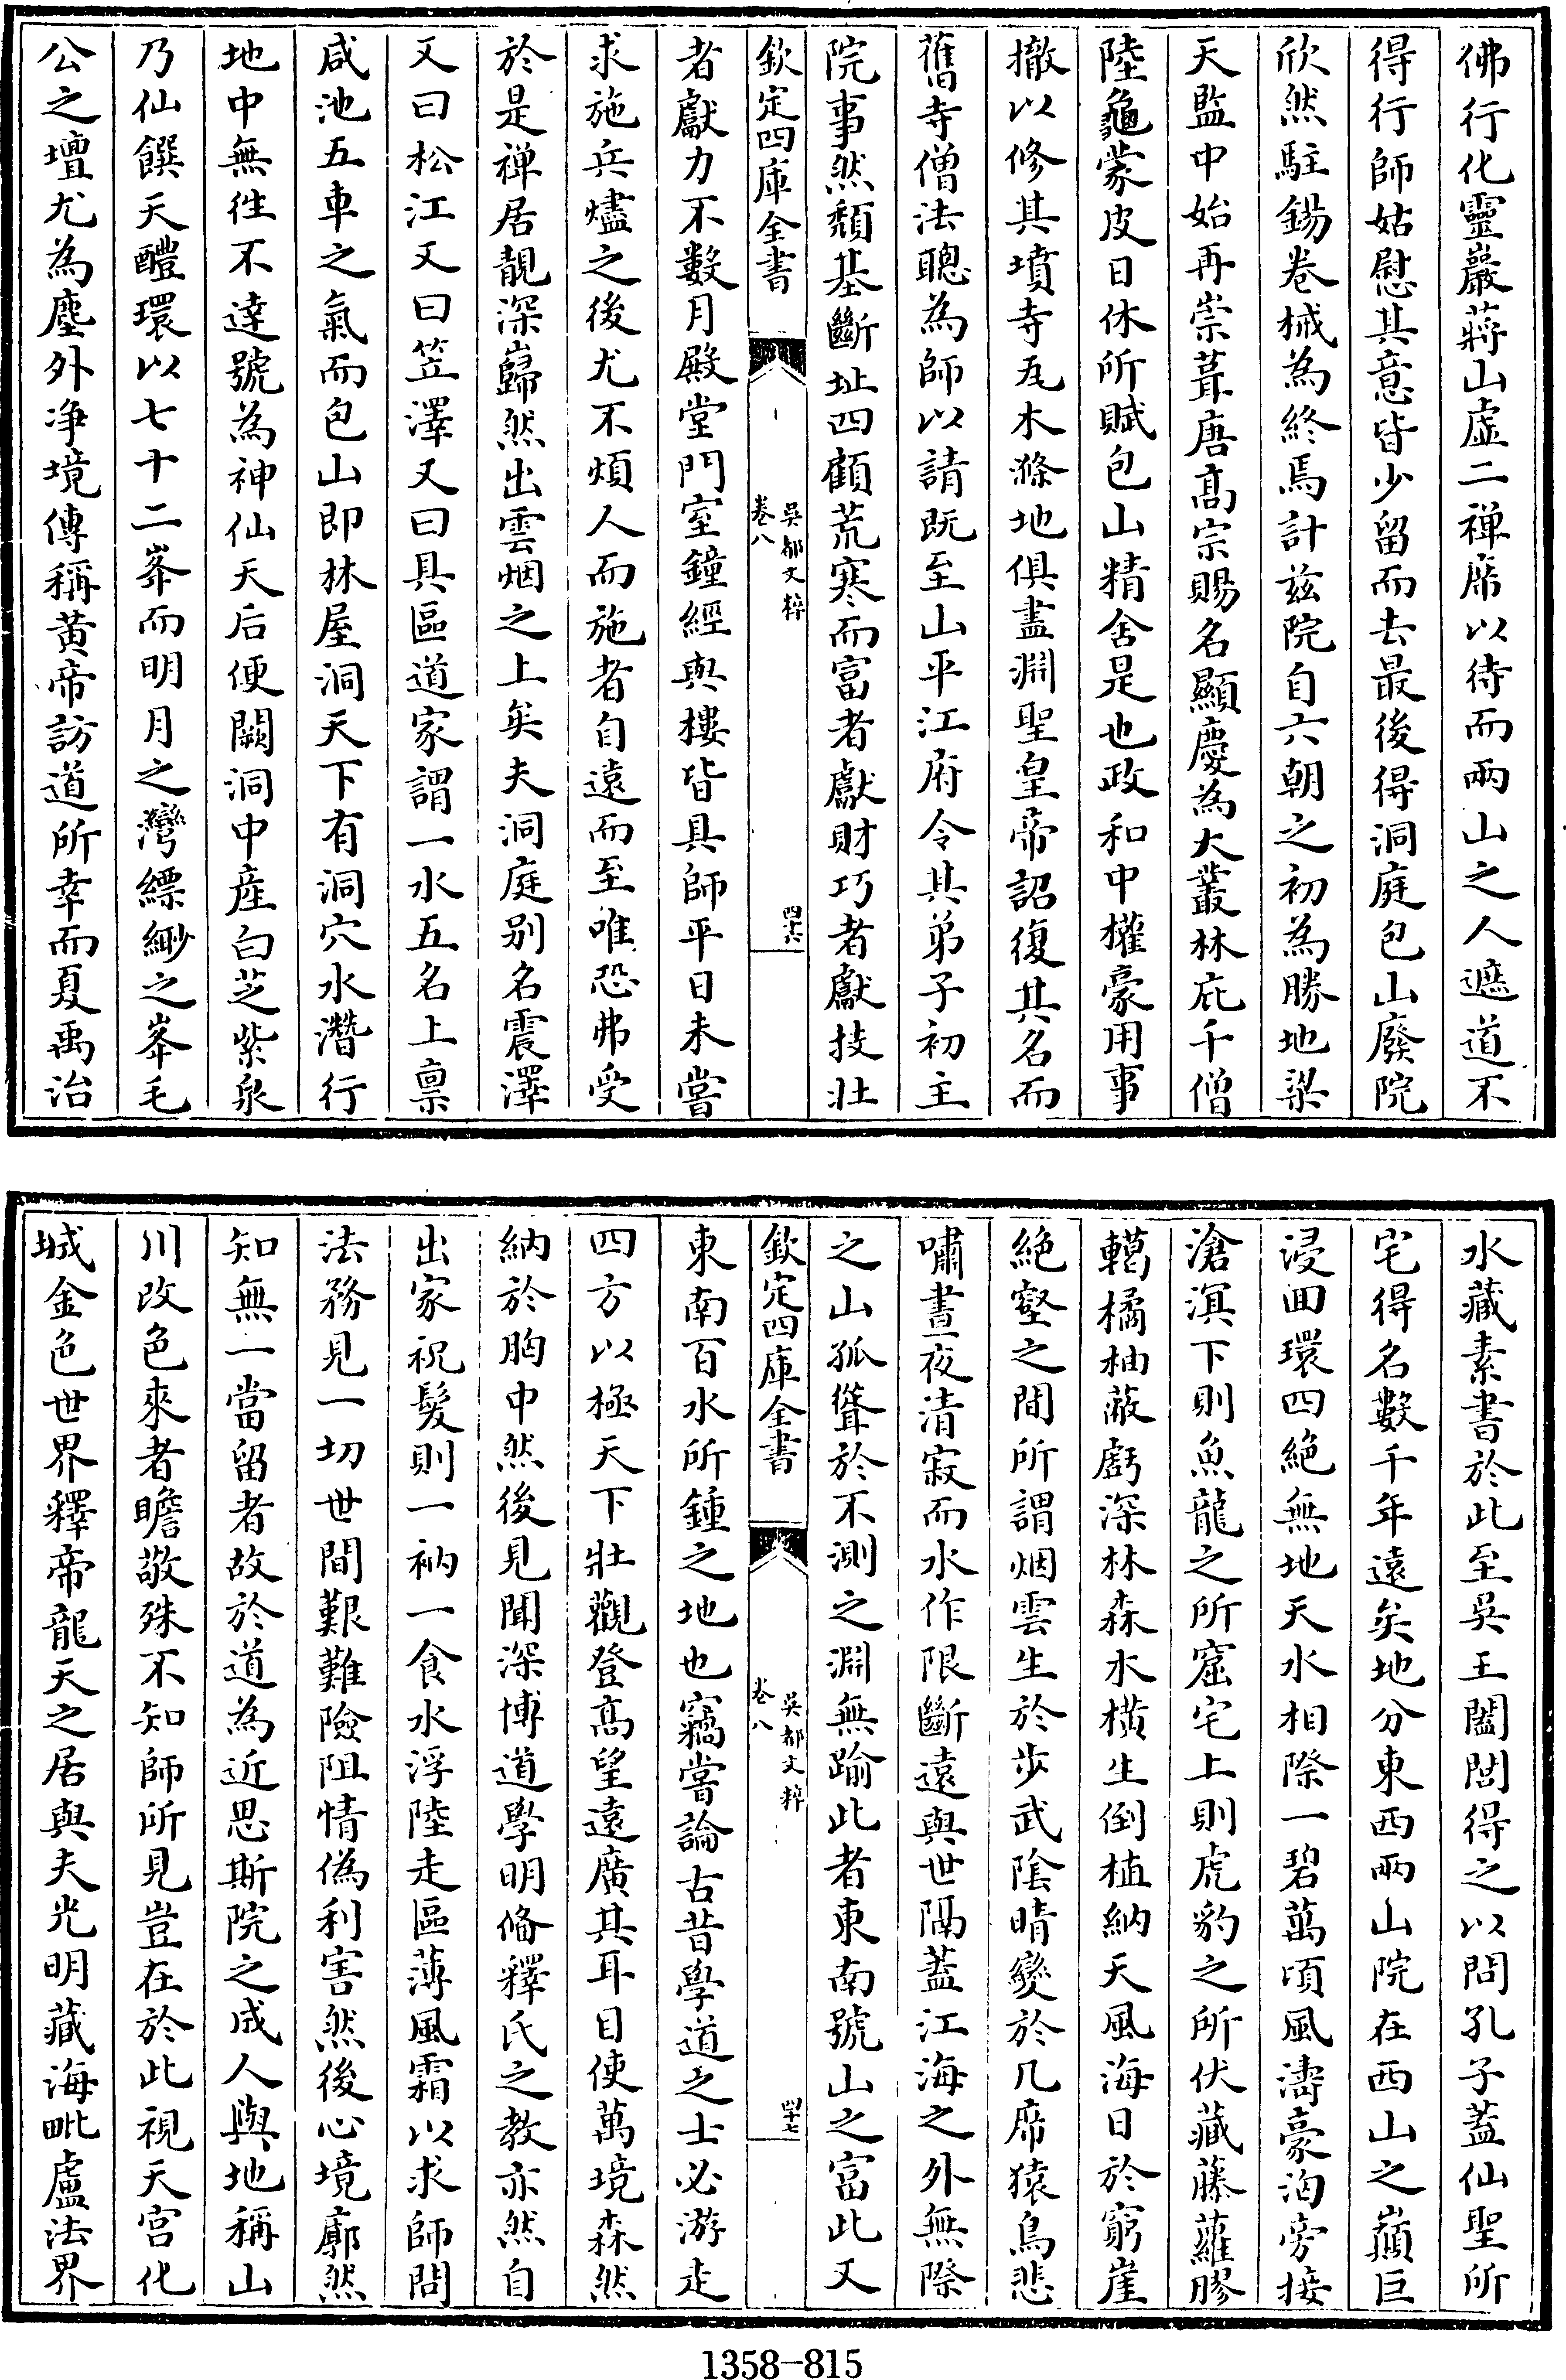 佛行化靈巖蔣山虚二禅席以待而兩山之人遮道不
得行師姑慰其意皆少留而去最後得洞庭包山廢院
欣然駐錫卷裓為終焉計兹院自六朝之初為勝地梁
天監中始再崇葺唐髙宗賜名顯慶為大叢林庇千僧
陸龜蒙皮日休所賦包山精舍是也政和中權豪用事
撤以修其墳寺瓦木滌地俱盡淵聖皇帝詔復其名而
舊寺僧法聰為師以請既至山平江府令其弟子初主
院事然頽基斷址四顧荒寒而富者獻財巧者獻技壯
欽定四庫全書
吳都文粹
卷八
四十六
者獻力不數月殿堂門室鐘經與樓皆具師平日未嘗
求施兵燼之後尤不煩人而施者自遠而至唯恐弗受
於是禅居靚深巋然出雲烟之上矣夫洞庭别名震澤
又曰松江又曰笠澤又曰具區道家謂一水五名上禀
咸池五車之氣而包山即林屋洞天下有洞穴水濳行
地中無徃不達號為神仙天后便闕洞中産白芝紫泉
乃仙饌天醴環以七十二峯而明月之灣縹緲之峯毛
公之壇尤為塵外净境傳稱黄帝訪道所幸而夏禹治
水藏素書於此至吳王闔閭得之以問孔子蓋仙聖所
宅得名數千年遠矣地分東西兩山院在西山之巔巨
浸囬環四絶無地天水相際一碧萬頃風濤豪洶旁接
滄溟下則魚龍之所窟宅上則虎豹之所伏藏藤蘿膠
轕橘柚蔽虧深林森木横生倒植納天風海日於窮崖
絶壑之間所謂烟雲生於步武陰晴變於几席猿鳥悲
嘯晝夜清寂而水作限斷逺與世隔蓋江海之外無際
之山孤聳於不測之淵無踰此者東南號山之富此又
欽定四庫全書
吳都文粹
卷八
四十七
東南百水所鍾之地也竊嘗論古昔學道之士必游走
四方以極天下壯觀登髙望遠廣其耳目使萬境森然
納於胸中然後見聞深博道學明脩釋氏之教亦然自
出家祝髮則一衲一食水浮陸走區薄風霜以求師問
法務見一切世間艱難險阻情偽利害然後心境廓然
知無一當留者故於道為近思斯院之成人與地稱山
川改色來者瞻敬殊不知師所見豈在於此視天宫化
城金色世界釋帝龍天之居與夫光明藏海毗盧法界
1358-815